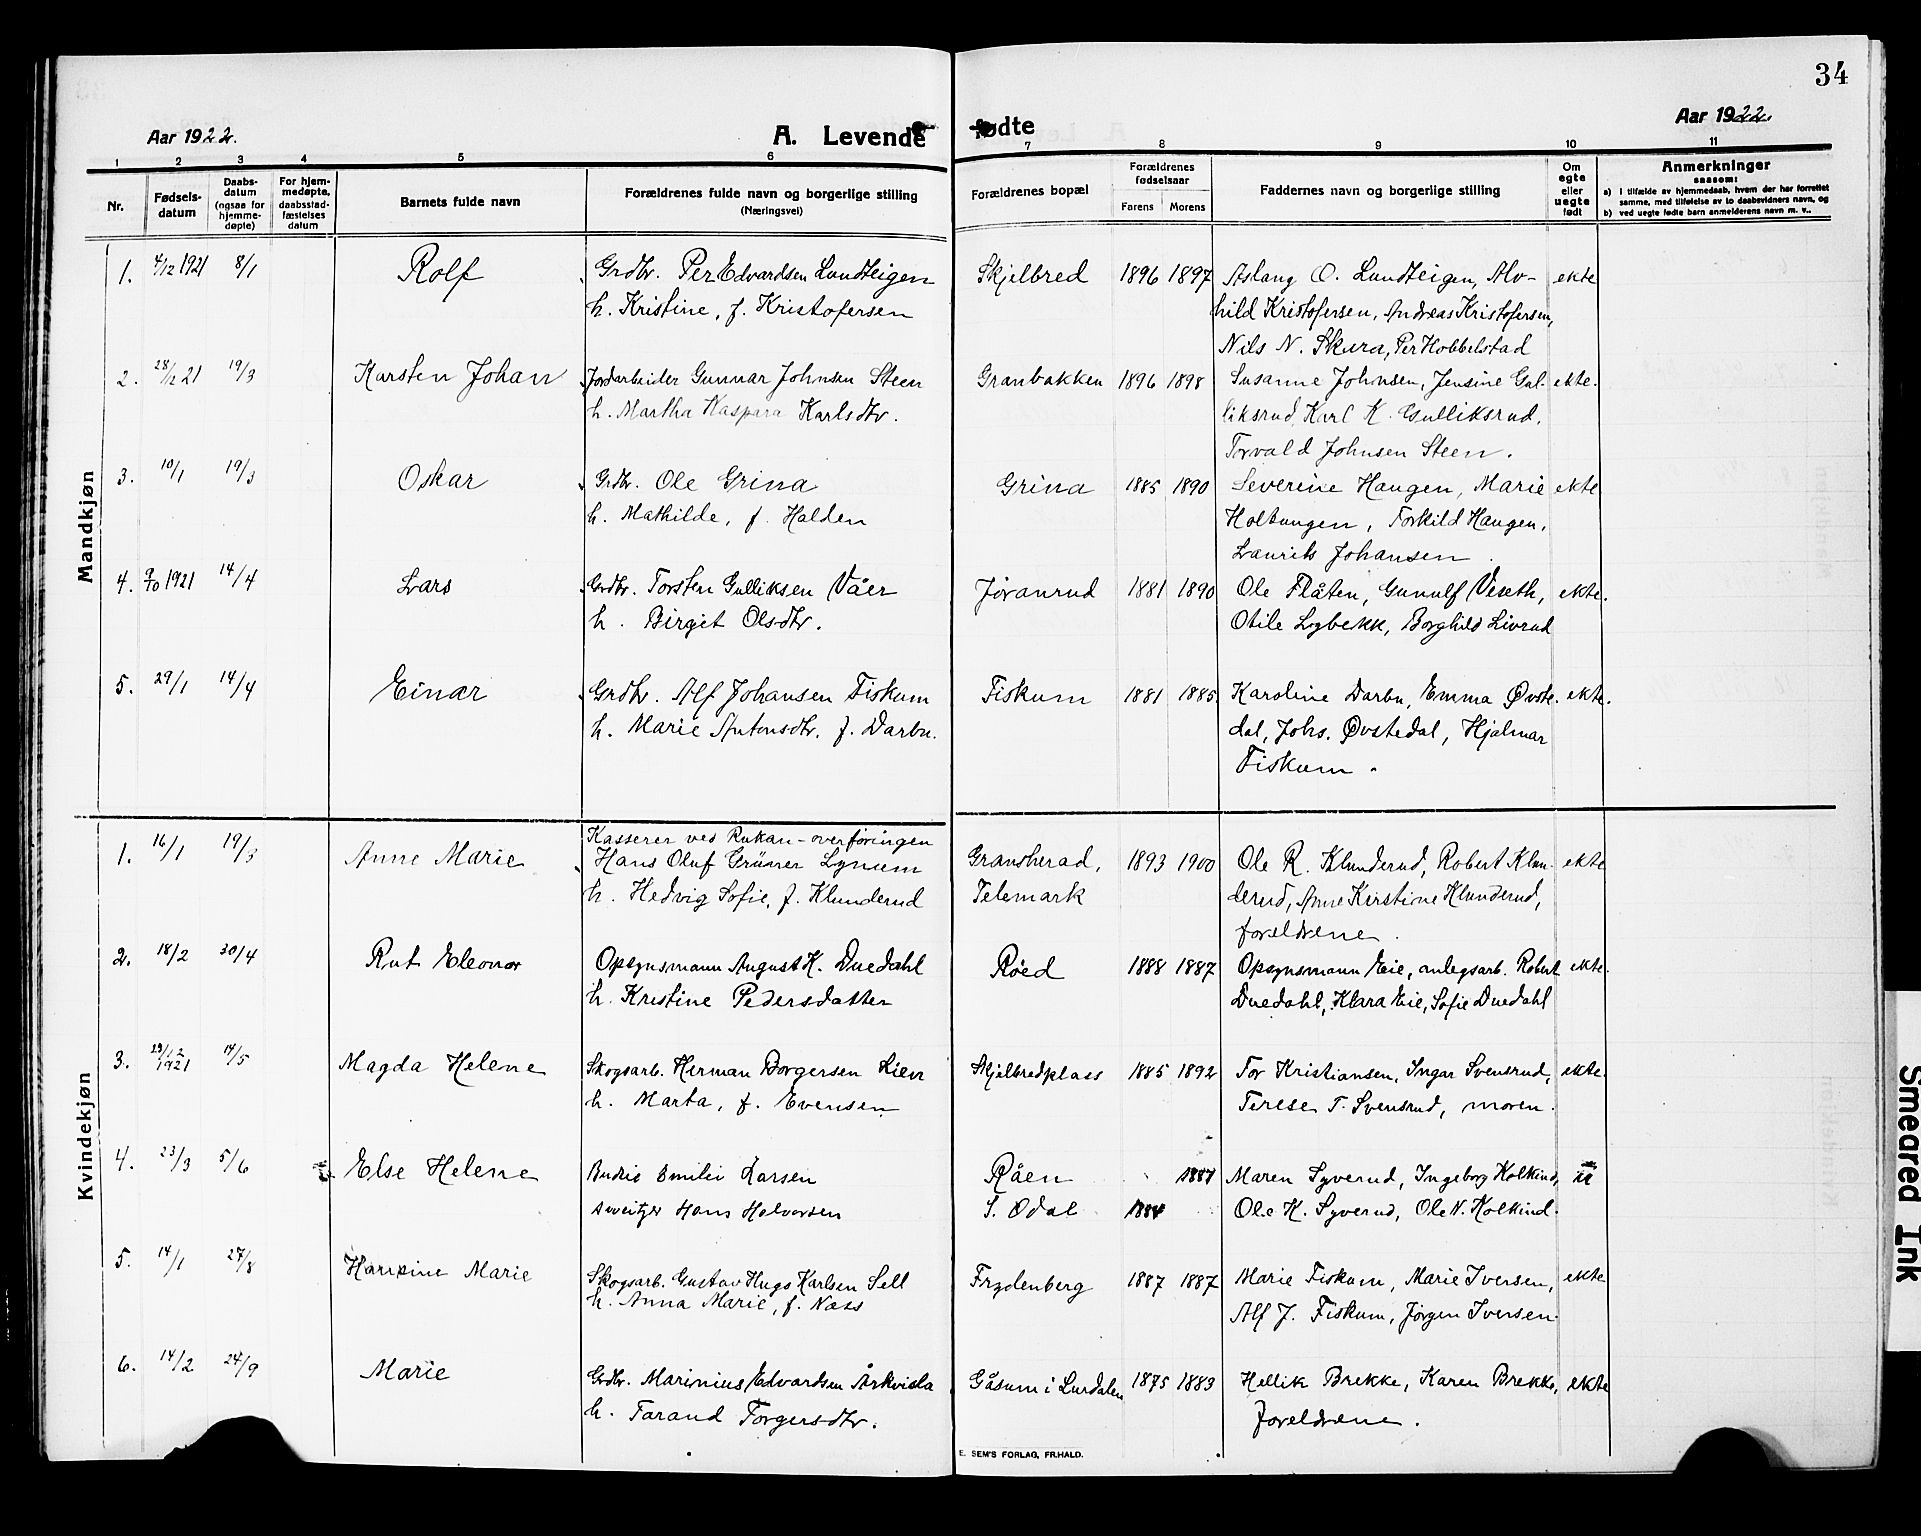 34
Aar 1922.
A. Levende
fødte
Aar 1922.
1 2 3 4 5 6 7 8 9 10 11
Nr.
Fødsels-
datum
Daabs-
datum
(ogsaa for
hjemme-
døpte)
For hjem-
medøpte,
daabsstad-
fæstelses
datum
Barnets fulde navn
Forældrenes fulde navn og borgerlige stilling
(Næringsvei)
Forældrenes bopæl
Forældrenes
fødselsaar
Farens Morens
Faddernes navn og borgerlige stilling
Om
egte
eller
uegte
født
Anmerkninger
saasom:
a) i tilfælde av hjemmedaab, hvem der har forrettet
samme, med tilføielse av to daabsvidners navn, og
b) ved uegte fødte barn anmelderens navn m. v..
Mandkjøn
1. 4/12 1921 8/1 Rolf Grdbr. Per Edvardsen Lundteigen Skjelbred 1896 1897 Aslaug O. Lundteigen, Alv- ekte
h. Kristine, f. Kristofersen hild Kristofersen, Andreas Kristofersen,
Nils N. Skura, Per Hobbelstad
2. 28/12 21 19/3 Karsten Johan Jordarbeider Gunnar Johnsen Steen Granbakken 1896 1898 Susanne Johnsen, Jensine Gul- ekte.
h. Martha Kaspara Karlsdtr. liksrud, Karl K. Gulliksrud,
Torvald Johnsen Steen.
3. 10/1 19/3 Oskar Grdbr. Ole Grina Grina 1885 1890 Severine Haugen, Marie ekte
h. Mathilde, f. Halden Holtungen, Torkild Haugen,
Laurits Johansen.
4. 9/10 1921 14/4 Lars Grdbr. Torsten Gulliksen Våer Jøranrud 1881 1890 Ole Flåten, Gunulf Veseth, ekte.
h. Birgit Olsdtr. Otile Lybekk, Borghild Livrud
5. 29/1 14/4 Einar Grdbr. Alf Johansen Fiskum Fiskum 1881 1885 Karoline Darbu, Emma Øvste- ekte.
h. Marie Antonsdtr. f. Darbu. dal, Johs. Øvstedal, Hjalmar
Fiskum.
Kvindekjøn
Kasserer ved Rukan-overføringen
1. 16/1 19/3 Anne Marie Hans Oluf Grüner Lynum Gransherad, 1893 1900 Ole R. Klunderud, Robert Klun- ekte
h. Hedvig Sofie, f. Klunderud Telemark derud, Anne Kirstine Klunderud,
foreldrene.
2. 18/2 30/4 Rut Eleonor Opsynsmann August K. Duedahl Røed 1888 1887 Opsynsmann Eie, anlegsarb. Robert ekte.
h. Kristine Pedersdatter Duedahl, Klara Eie, Sofie Duedahl
3. 29/12 1921 14/5 Magda Helene Skogsarb. Herman Borgersen Lien Skjelbredplass 1885 1892 Tor Kristiansen, Ingar Svensrud, ekte.
h. Marta, f. Evensen Terese T. Svensrud, moren.
4. 23/3 5/6 Else Helene Budeie Emilie Larsen Råen 1887 Maren Syverud, Ingeborg Kolkind, u
sveitzer Hans Halvorsen S. Odal 1884 Ole K. Syverud, Ole N. Kolkind.
5. 14/1 27/8 Marie Skogsarb. Gustav Hugo Karlsen Sell Frydenberg 1887 1887 Marie Fiskum, Marie Iversen, ekte
h. Anna Marie, f. Næss Alf J. Fiskum, Jørgen Iversen.
6. 14/2 24/9 Marie Grdbr. Marinius Edvardsen Årkvisla Gåsum i Lurdalen 1875 1883 Hellik Brekke, Karen Brekke, ekte
h. Tarand Torgersdtr. foreldrene.
E. SEM'S FORLAG, FR.HALD.
Smeared Ink